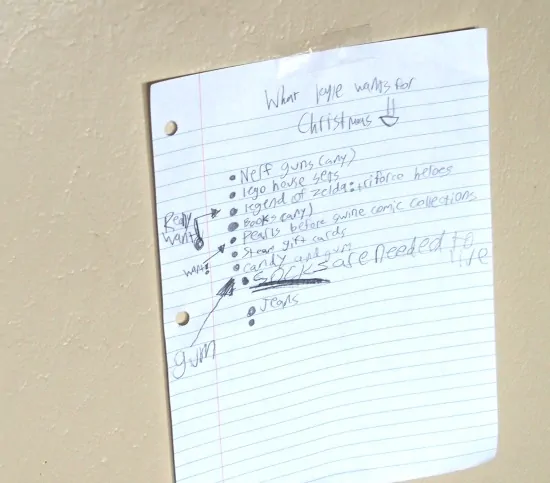 What kyle wants for
Christmas
Nerf guns (any)
lego house sets
legend of zelda: triforce heloes
Books (any)
Pearls before swine comic collections
Steam gift cards
candy and gum
SOCKS are needed to live
Jeans
Really
want!
want!
gum